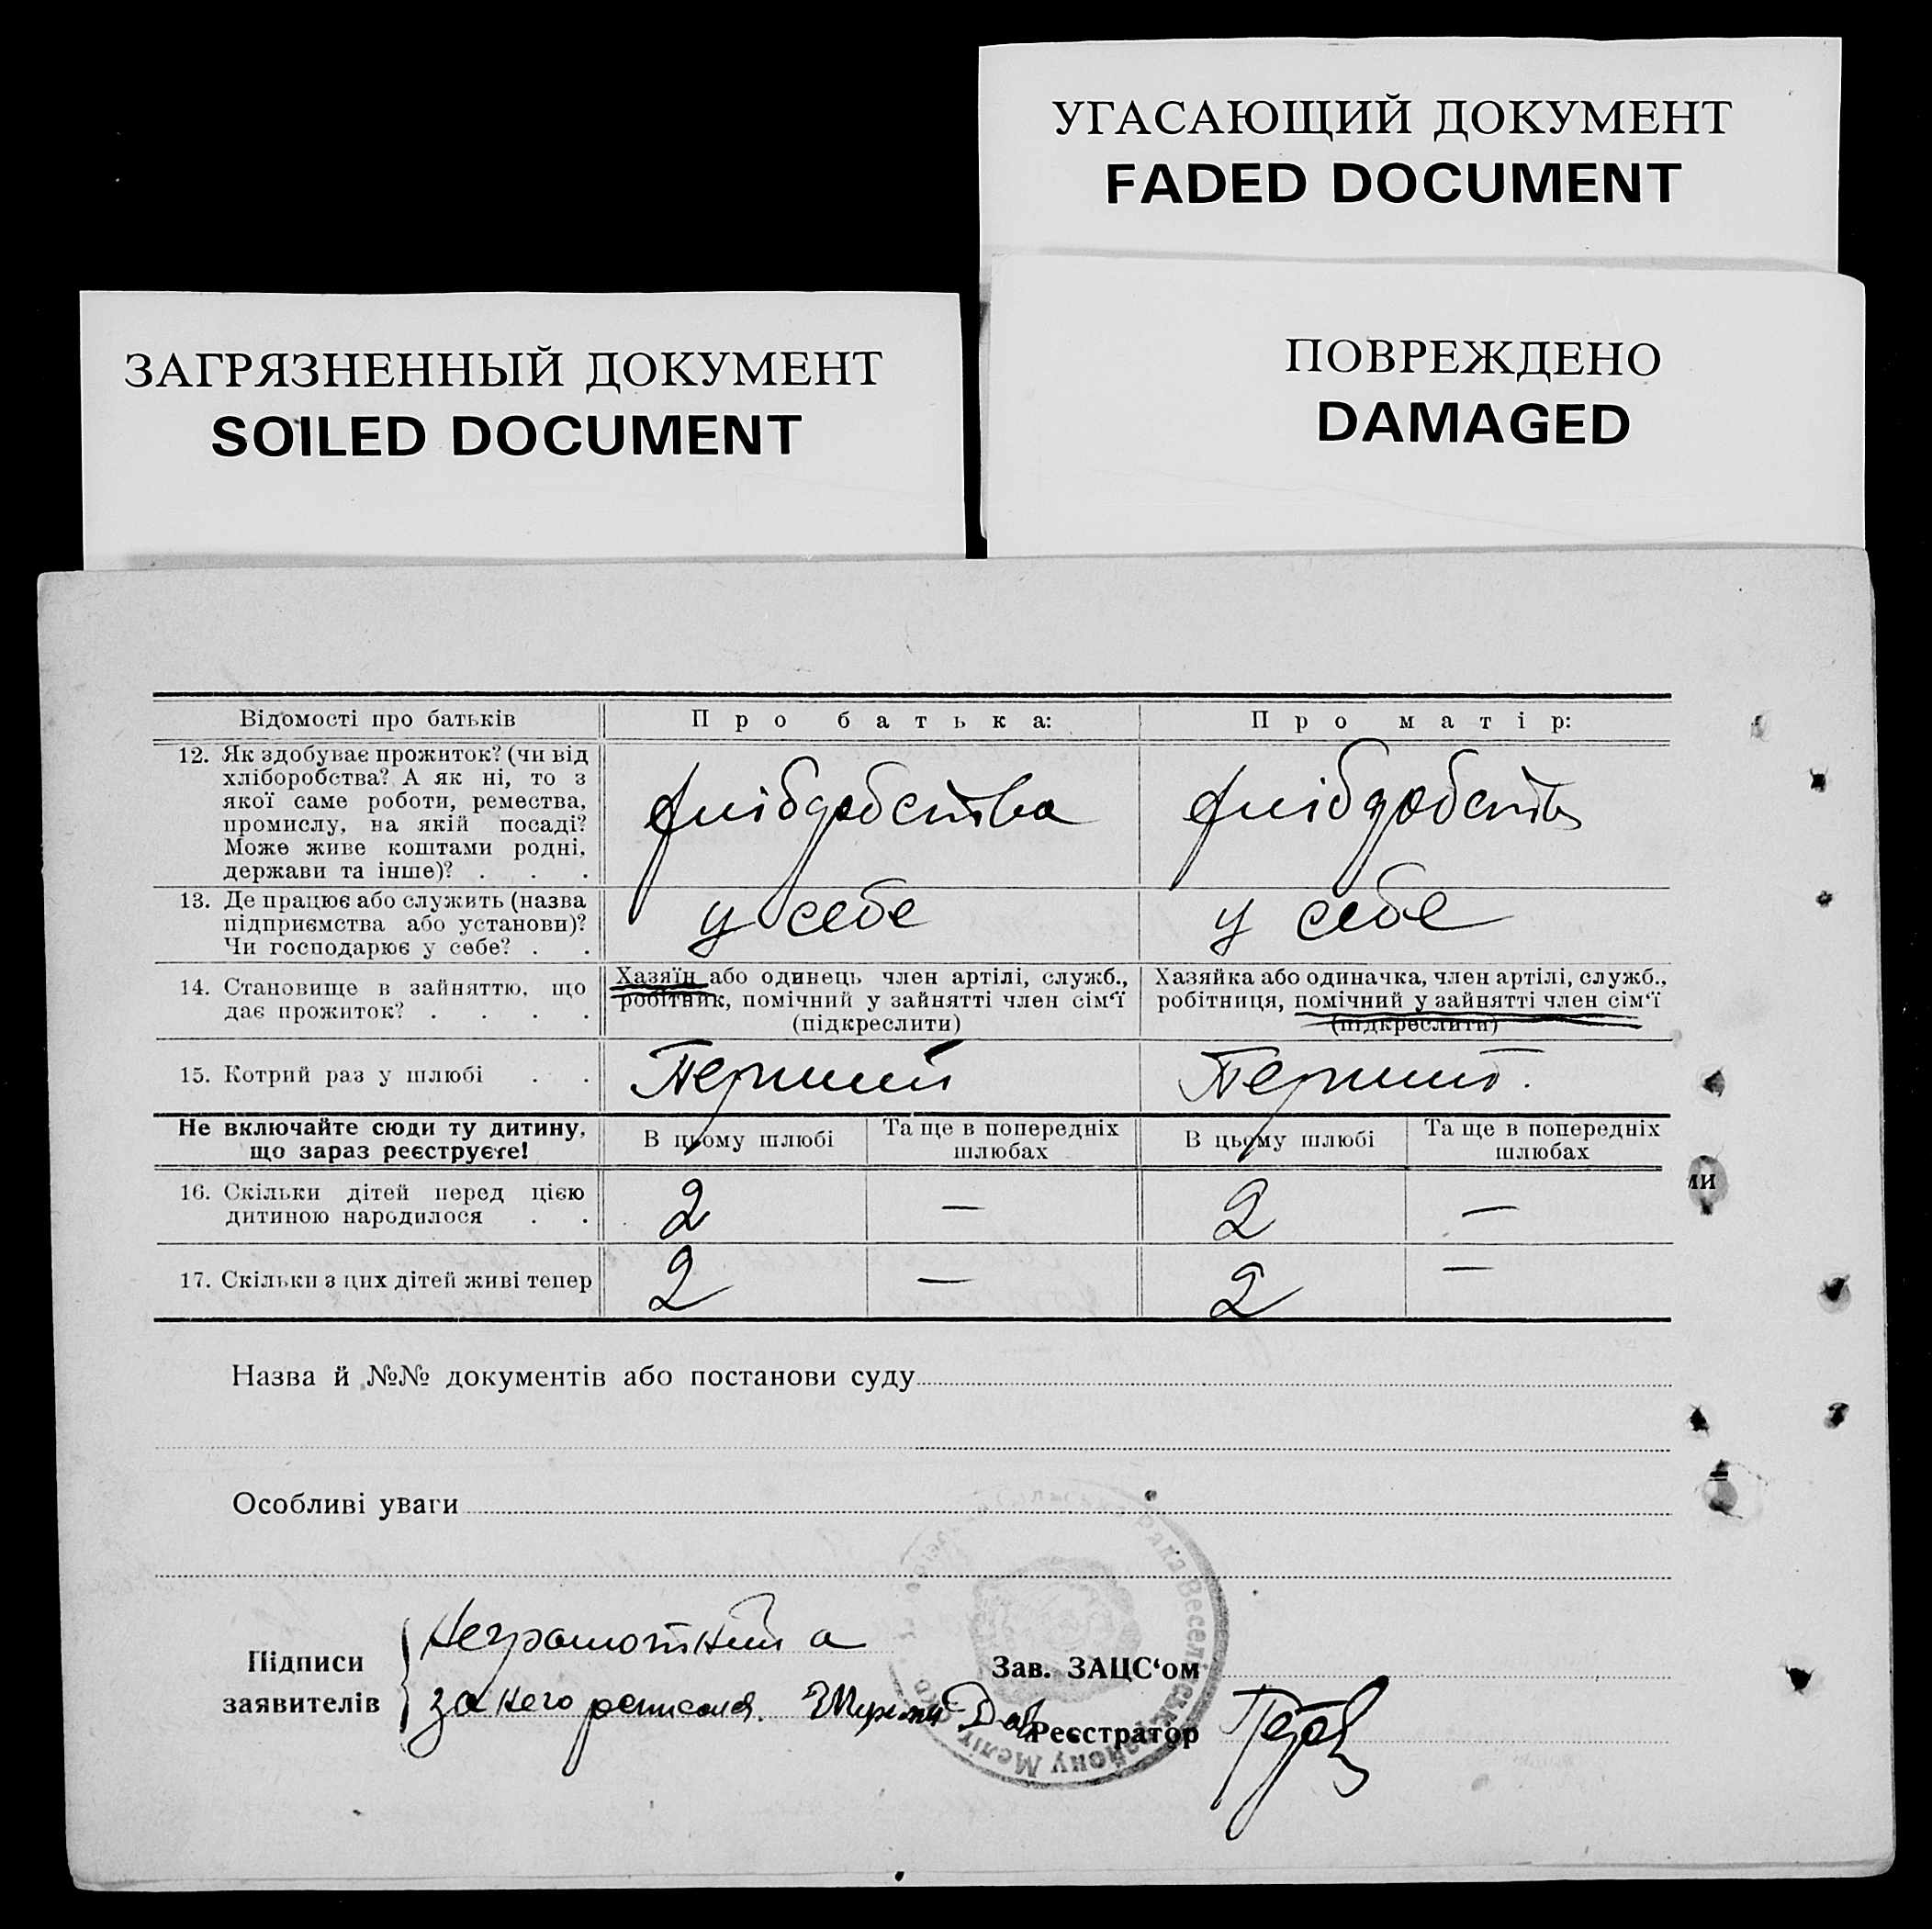 УГАСАЮЩИЙ ДОКУМЕНТ
FADED DOCUMENT
ЗАГРЯЗНЕННЫЙ ДОКУМЕНТ
SOILED DOCUMENT
ПОВРЕЖДЕНО
DAMAGED
Відомості про батьків
Про батька:
Про матір:
12. Як здобуває прожиток? (чи від
хліборобства? А як ні, то з
якої саме роботи, ремества,
промислу, на якій посаді?
Може живе коштами родні,
держави та інше)? . . .
хліборобства
хліборобства
13. Де працює або служить (назва
підприємства або установи)?
Чи господарює у себе? . .
у себе
у себе
14. Становище в зайняттю, що
дає прожиток? . . . .
Хазяїн або одинець член артілі, служб.,
робітник, помічний у зайнятті член сім'ї
(підкреслити)
Хазяйка або одиначка, член артілі, служб.,
робітниця, помічний у зайнятті член сім'ї
(підкреслити)
15. Котрий раз у шлюбі . .
Перший
Перший.
Не включайте сюди ту дитину,
що зараз реєструєте!
В цьому шлюбі
Та ще в попередніх
шлюбах
В цьому шлюбі
Та ще в попередніх
шлюбах
16. Скільки дітей перед цією
дитиною народилося . .
2 — 2 —
17. Скільки з цих дітей живі тепер
2 — 2 —
ми
Назва й №№ документів або постанови суду
Особливі уваги
Підписи
заявителів
Неграмотний а
за него росписался.
Зав. ЗАЦС'ом
Реєстратор